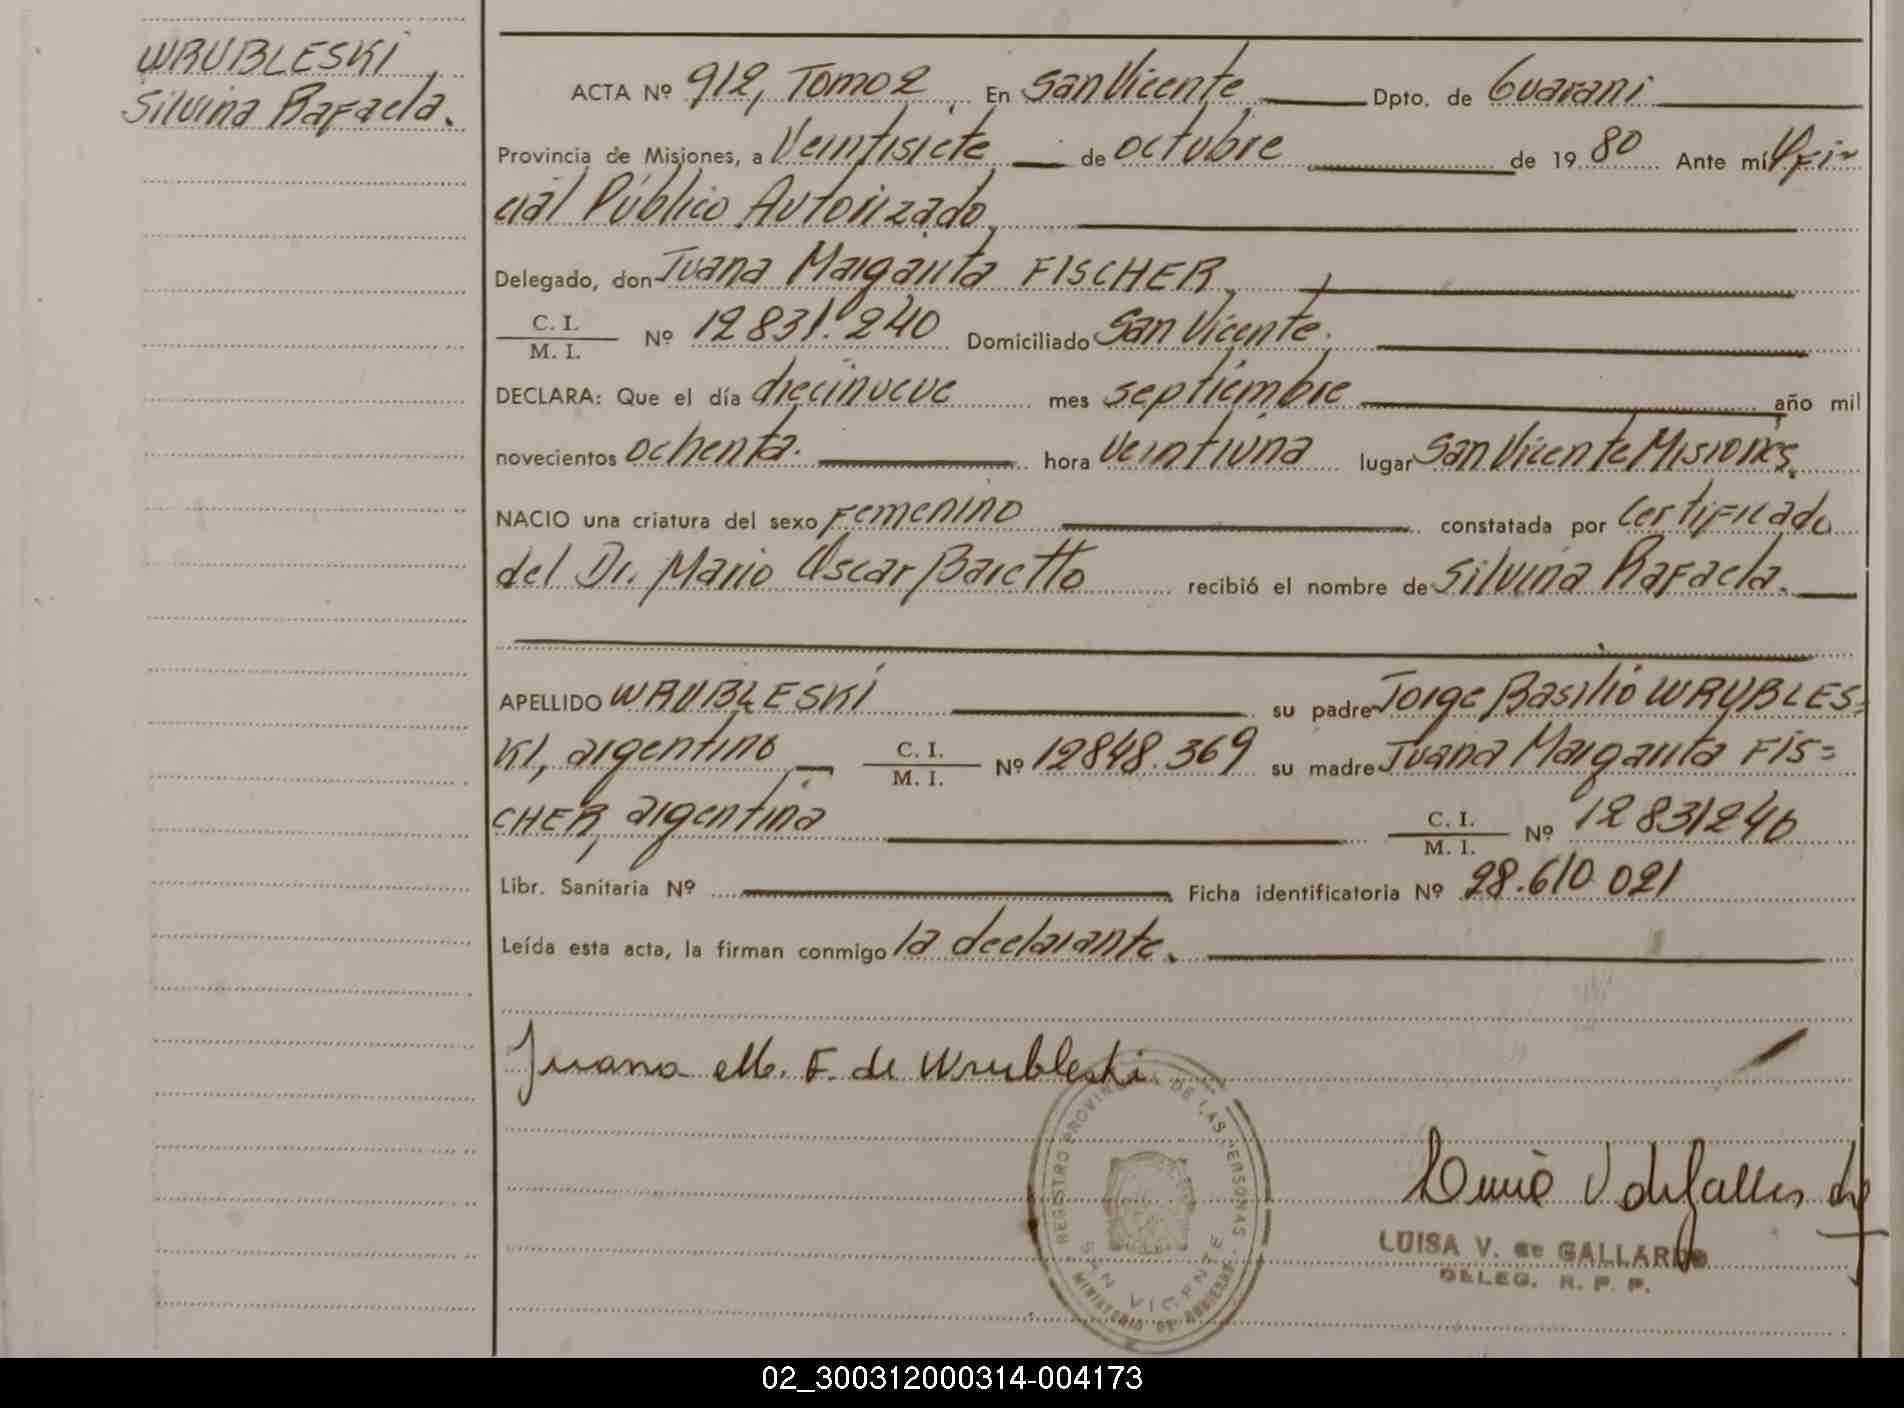 WRUBLESKI
Silvina Rafaela.
ACTA Nº 912, Tomo 2. En San Vicente Dpto. de Guarani
Provincia de Misiones, a Veintisiete de octubre de 1980 Ante mí Ofi-
cial Público Autorizado,
Delegado, don Juana Margarita FISCHER,
C. I. / M. I. Nº 12831.240 Domiciliado San Vicente.
DECLARA: Que el día diecinueve mes septiembre año mil
novecientos ochenta. hora veintiuna lugar San Vicente Misiones,
NACIO una criatura del sexo Femenino constatada por Certificado
del Dr. Mario Oscar Baretto recibió el nombre de Silvina Rafaela.
APELLIDO WRUBLESKI su padre Jorge Basilio WRUBLES=
KI, argentino C. I. / M. I. Nº 12848.369 su madre Juana Margarita FIS=
CHER, argentina C. I. / M. I. Nº 12831240
Libr. Sanitaria Nº Ficha identificatoria Nº 28.610.021
Leída esta acta, la firman conmigo la declarante.
Juana M. F. de Wrubleski
REGISTRO PROVINCIAL DE LAS PERSONAS
SAN VICENTE
MINISTERIO DE GOBIERNO
LUISA V. de GALLARDO
DELEG. R. P. P.
02_300312000314-004173